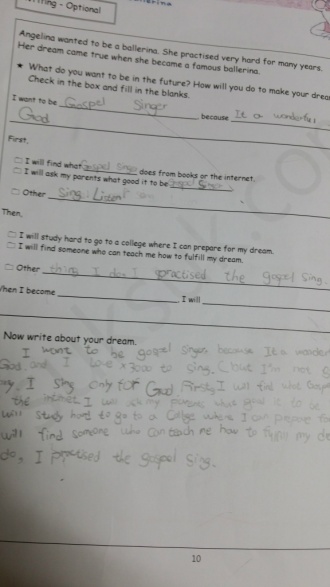 ting - Optional
Ballerina
Angelina wanted to be a ballerina. She practised very hard for many years.
Her dream came true when she became a famous ballerina.
★ What do you want to be in the future? How will you do to make your drea
Check in the box and fill in the blanks.
I want to be Gospel Singer, because It a wonderful
God
First,
I will find what gospel singer does from books or the internet.
I will ask my parents what good it to be gospel singer.
Other Sing. Listen
Then,
I will study hard to go to a college where I can prepare for my dream.
I will find someone who can teach me how to fulfill my dream.
Other thing I do, I practised the gospel sing.
When I become, I will
Now write about your dream.
I want to be gospel singer, because Its a wonder
God. and I love x3000 to sing. (but I'm not g
ay, I sing only for God. First, I will find what Gospel
the internet. I will ask my parents what good it to be
will study hard to go to a college where I can prepare fo
will find somone who can teach me how to fulfill my dr
do, I practised the gospel sing.
10